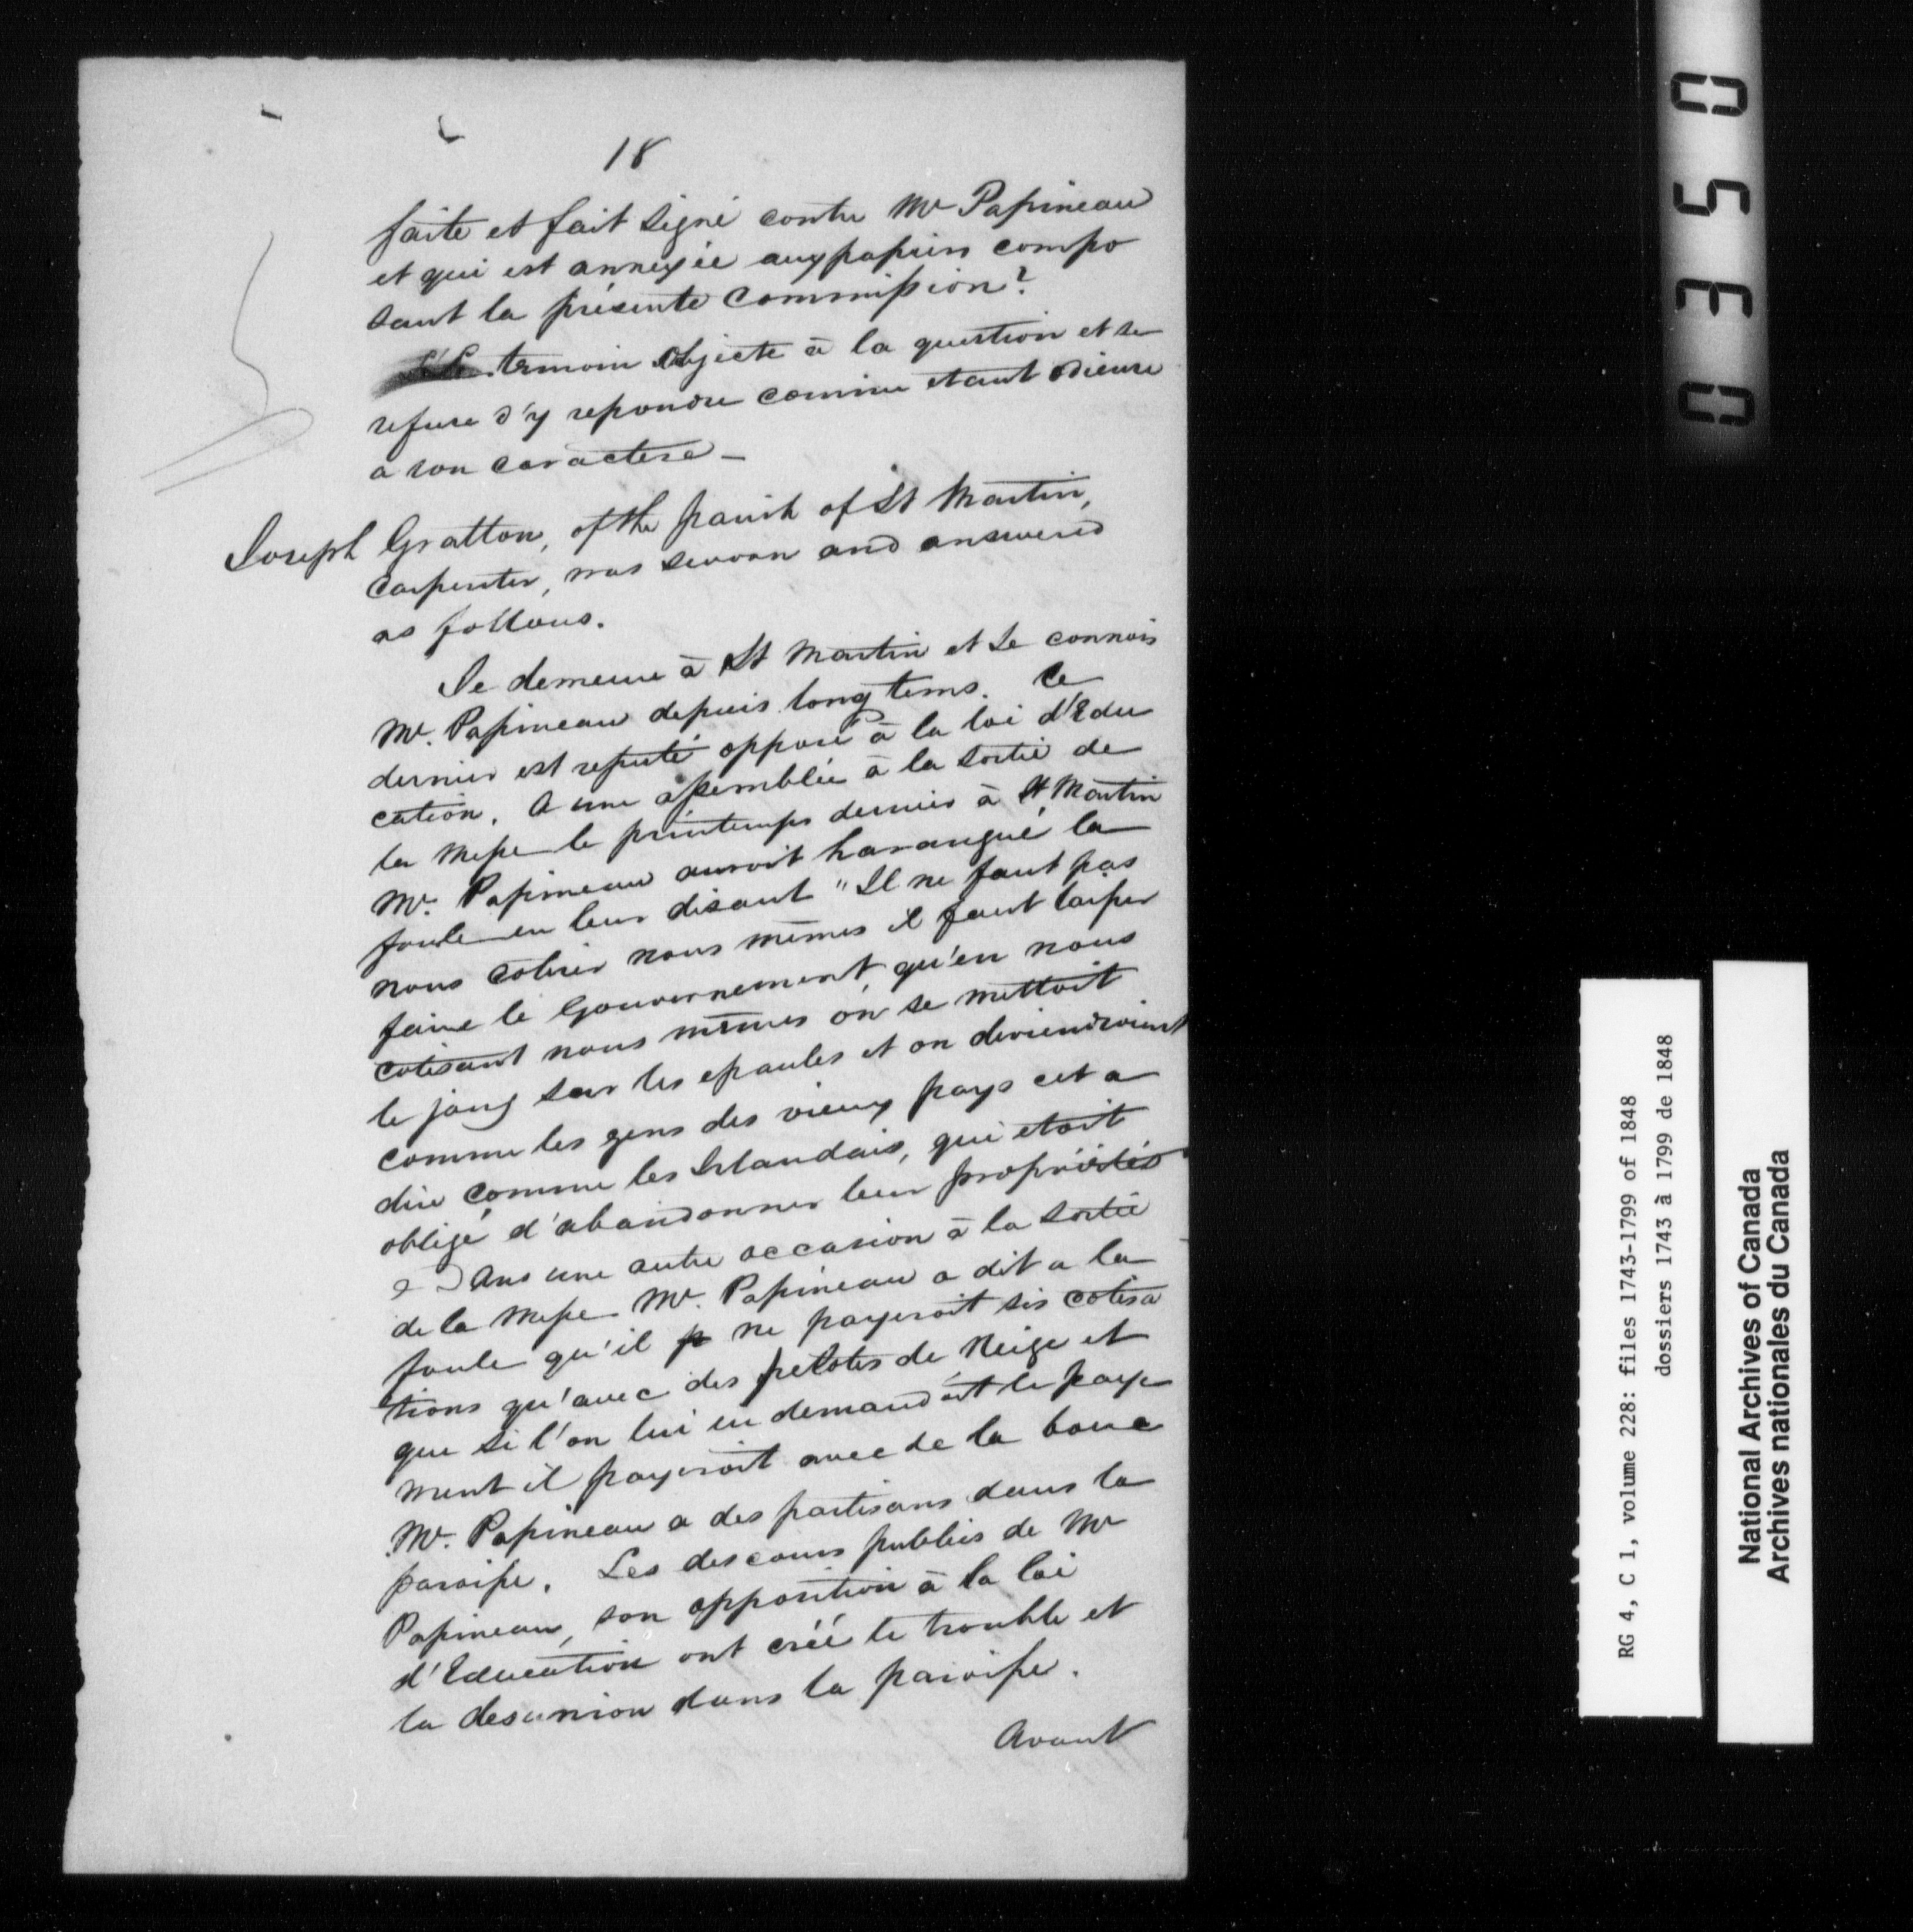 18
faite et fait signé contre Mr Papineau
et qui est annexée aux papiers compo
sant la présente Commission?
Le temoin objecte à la question et se
refuse d'y repondre comme etant odieuse
a son caractere -
Joseph Gratton, of the parish of St Martin,
carpenter, was sworn and answered
as follows.
Je demeure à St Martin et Je connois
Mr. Papineau depuis long tems. Ce
dernier est reputé opposé à la loi d'Edu
cation. A une assemblée à la sortie de
la Messe le printemps dernier à St Martin
Mr. Papineau auroit harangué la
foule en leur disant "Il ne faut pas
nous cotiser nous mêmes il faut laisser
faire le Gouvernement, qu'en nous
cotisant nous mêmes on se mettoit
le joug sur les epaules et on deviendroient
comme les gens des vieux pays cet a
dire comme les Irlandais, qui etoit
obligé d'abandonner leur propriétés
Dans une autre occasion à la sortie
de la Messe Mr. Papineau a dit a la
foule qu'il p ne payeroit sis cotisa
tions qu'avec des pelotes de Neige et
que si l'on lui en demandoit le paye
ment il payeroit avec de la boue
Mr. Papineau a des partisans dans la
paroisse. Les descours publics de Mr
Papineau, son opposition à la loi
d'Education ont créé le trouble et
la desunion dans la paroisse.
Avant
0350
RG 4, C 1, volume 228: files 1743-1799 of 1848
dossiers 1743 à 1799 de 1848
National Archives of Canada
Archives nationales du Canada